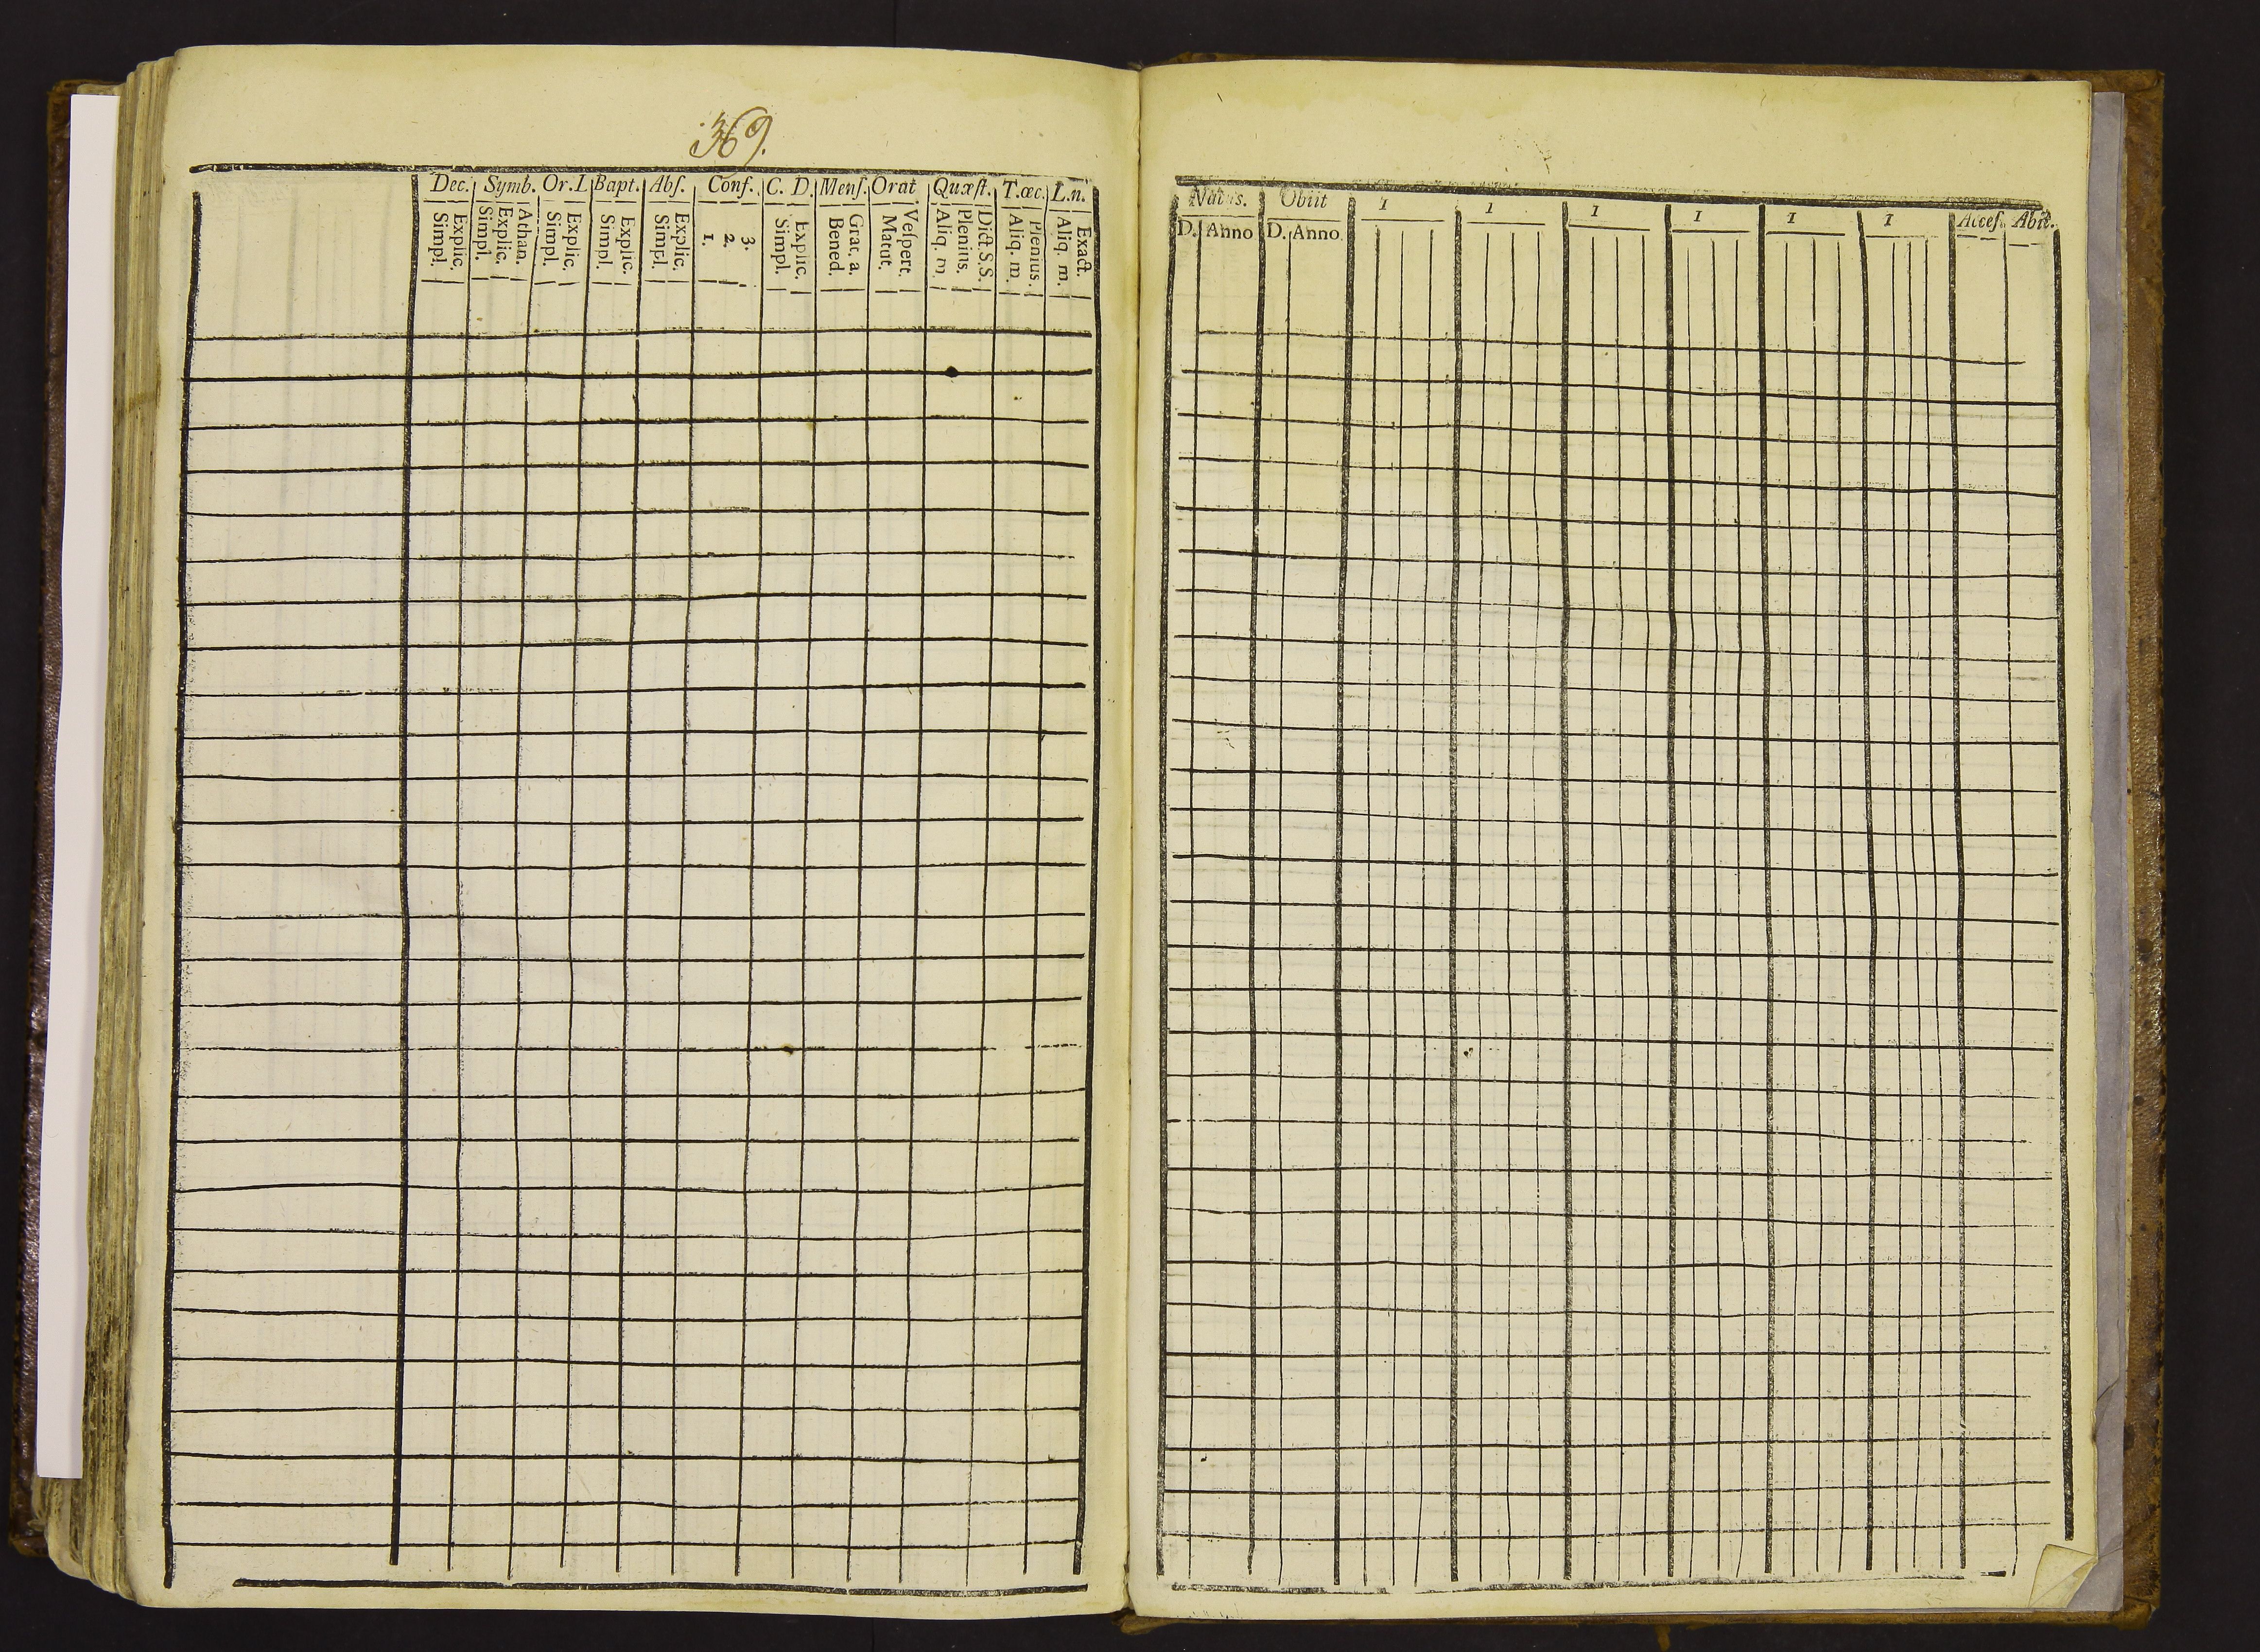 369.
Dec. Symb. Or. L Bapt. Abſ. Conf. C. D. Menſ. Orat Quæſt. T. œc. L.n.
Simpl. Explic. Simpl. Explic. Athan. Simpl. Explic. Simpl. Explic. Simpl. Explic. 1. 2. 3. Simpl. Explic. Bened. Grat. a. Matut. Veſpert. Aliq. m. Plenius. Dict. S.S. Aliq. m. Plenius. Aliq. m. Exact.
Natus. Obiit 1 1 1 1 1 1 Acceſ. Abit.
D. Anno D. Anno